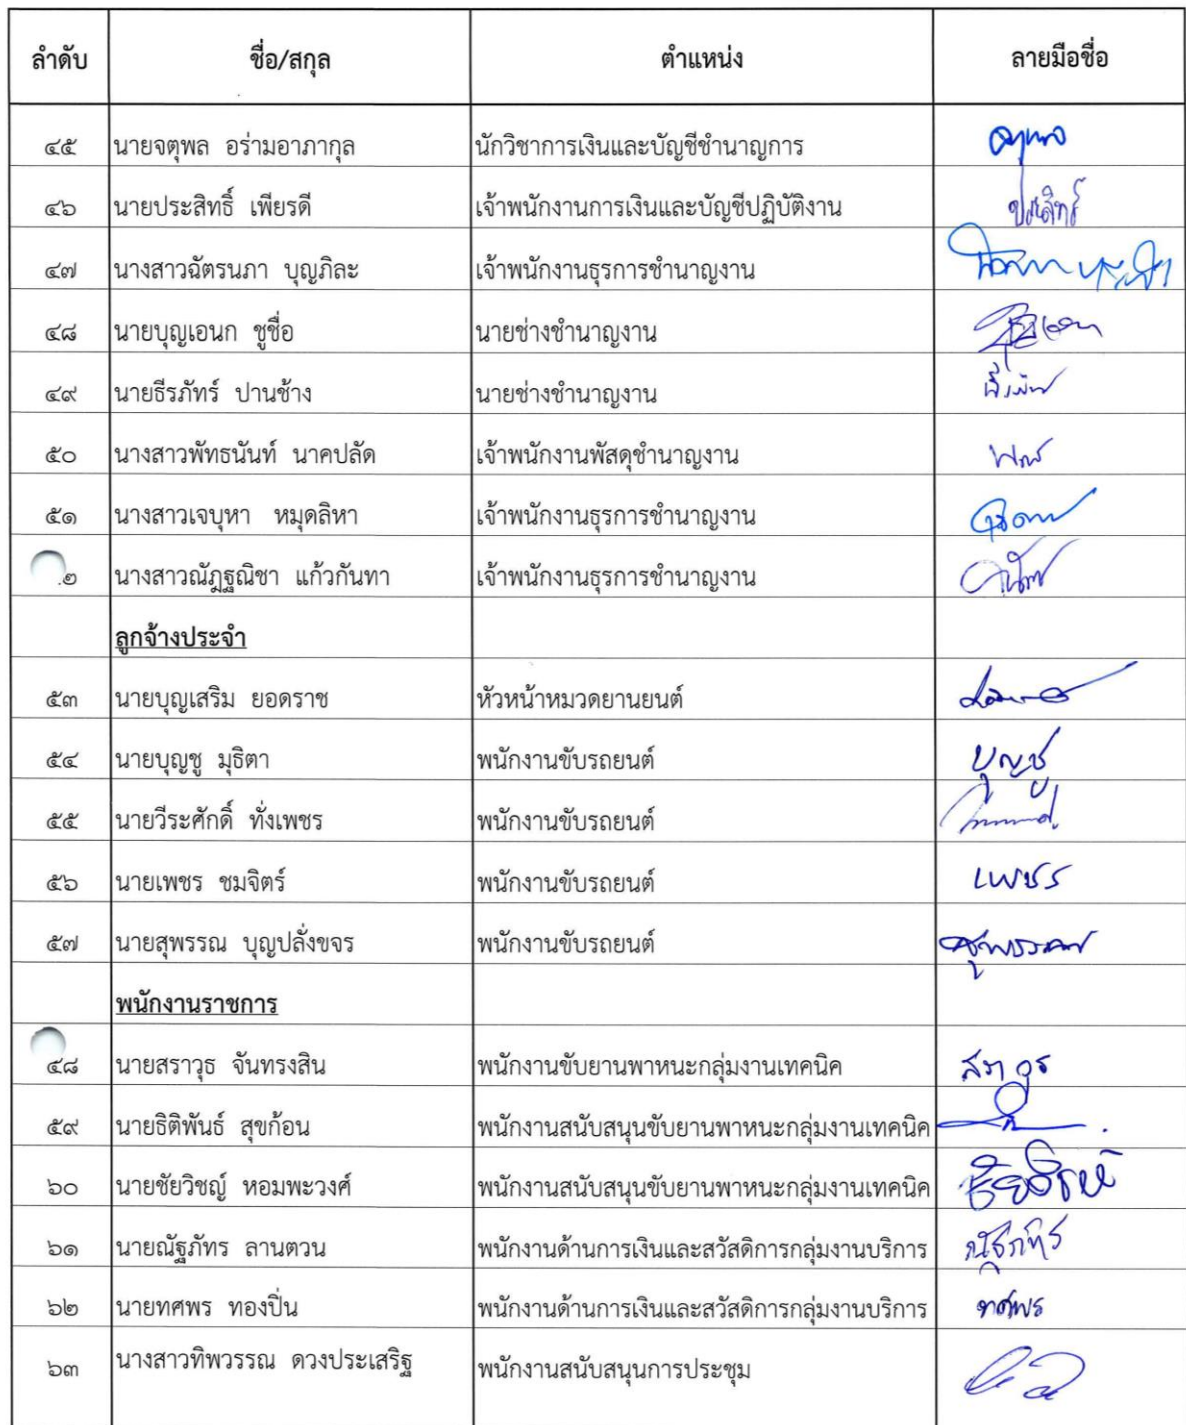 ลำดับ ชื่อ/สกุล ตำแหน่ง ลายมือชื่อ
๔๕ นายจตุพล อร่ามอาภากุล นักวิชาการเงินและบัญชีชำนาญการ
๔๖ นายประสิทธิ์ เพียรดี เจ้าพนักงานการเงินและบัญชีปฏิบัติงาน ประสิทธิ์
๔๗ นางสาวฉัตรนภา บุญภิละ เจ้าพนักงานธุรการชำนาญงาน
๔๘ นายบุญเอนก ชูชื่อ นายช่างชำนาญงาน
๔๙ นายธีรภัทร์ ปานช้าง นายช่างชำนาญงาน
๕๐ นางสาวพัทธนันท์ นาคปลัด เจ้าพนักงานพัสดุชำนาญงาน
๕๑ นางสาวเจบุหา หมุดลิหา เจ้าพนักงานธุรการชำนาญงาน
๒ นางสาวณัฎฐณิชา แก้วกันทา เจ้าพนักงานธุรการชำนาญงาน
ลูกจ้างประจำ
๕๓ นายบุญเสริม ยอดราช หัวหน้าหมวดยานยนต์
๕๔ นายบุญชู มุธิตา พนักงานขับรถยนต์ บุญชู
๕๕ นายวีระศักดิ์ ทั่งเพชร พนักงานขับรถยนต์
๕๖ นายเพชร ชมจิตร์ พนักงานขับรถยนต์ เพชร
๕๗ นายสุพรรณ บุญปลั่งขจร พนักงานขับรถยนต์ สุพรรณ
พนักงานราชการ
๕๘ นายสราวุธ จันทรงสิน พนักงานขับยานพาหนะกลุ่มงานเทคนิค สราวุธ
๕๙ นายธิติพันธ์ สุขก้อน พนักงานสนับสนุนขับยานพาหนะกลุ่มงานเทคนิค
๖๐ นายชัยวิชญ์ หอมพะวงศ์ พนักงานสนับสนุนขับยานพาหนะกลุ่มงานเทคนิค
๖๑ นายณัฐภัทร ลานตวน พนักงานด้านการเงินและสวัสดิการกลุ่มงานบริการ ณัฐภัทร
๖๒ นายทศพร ทองปิ่น พนักงานด้านการเงินและสวัสดิการกลุ่มงานบริการ ทศพร
๖๓ นางสาวทิพวรรณ ดวงประเสริฐ พนักงานสนับสนุนการประชุม